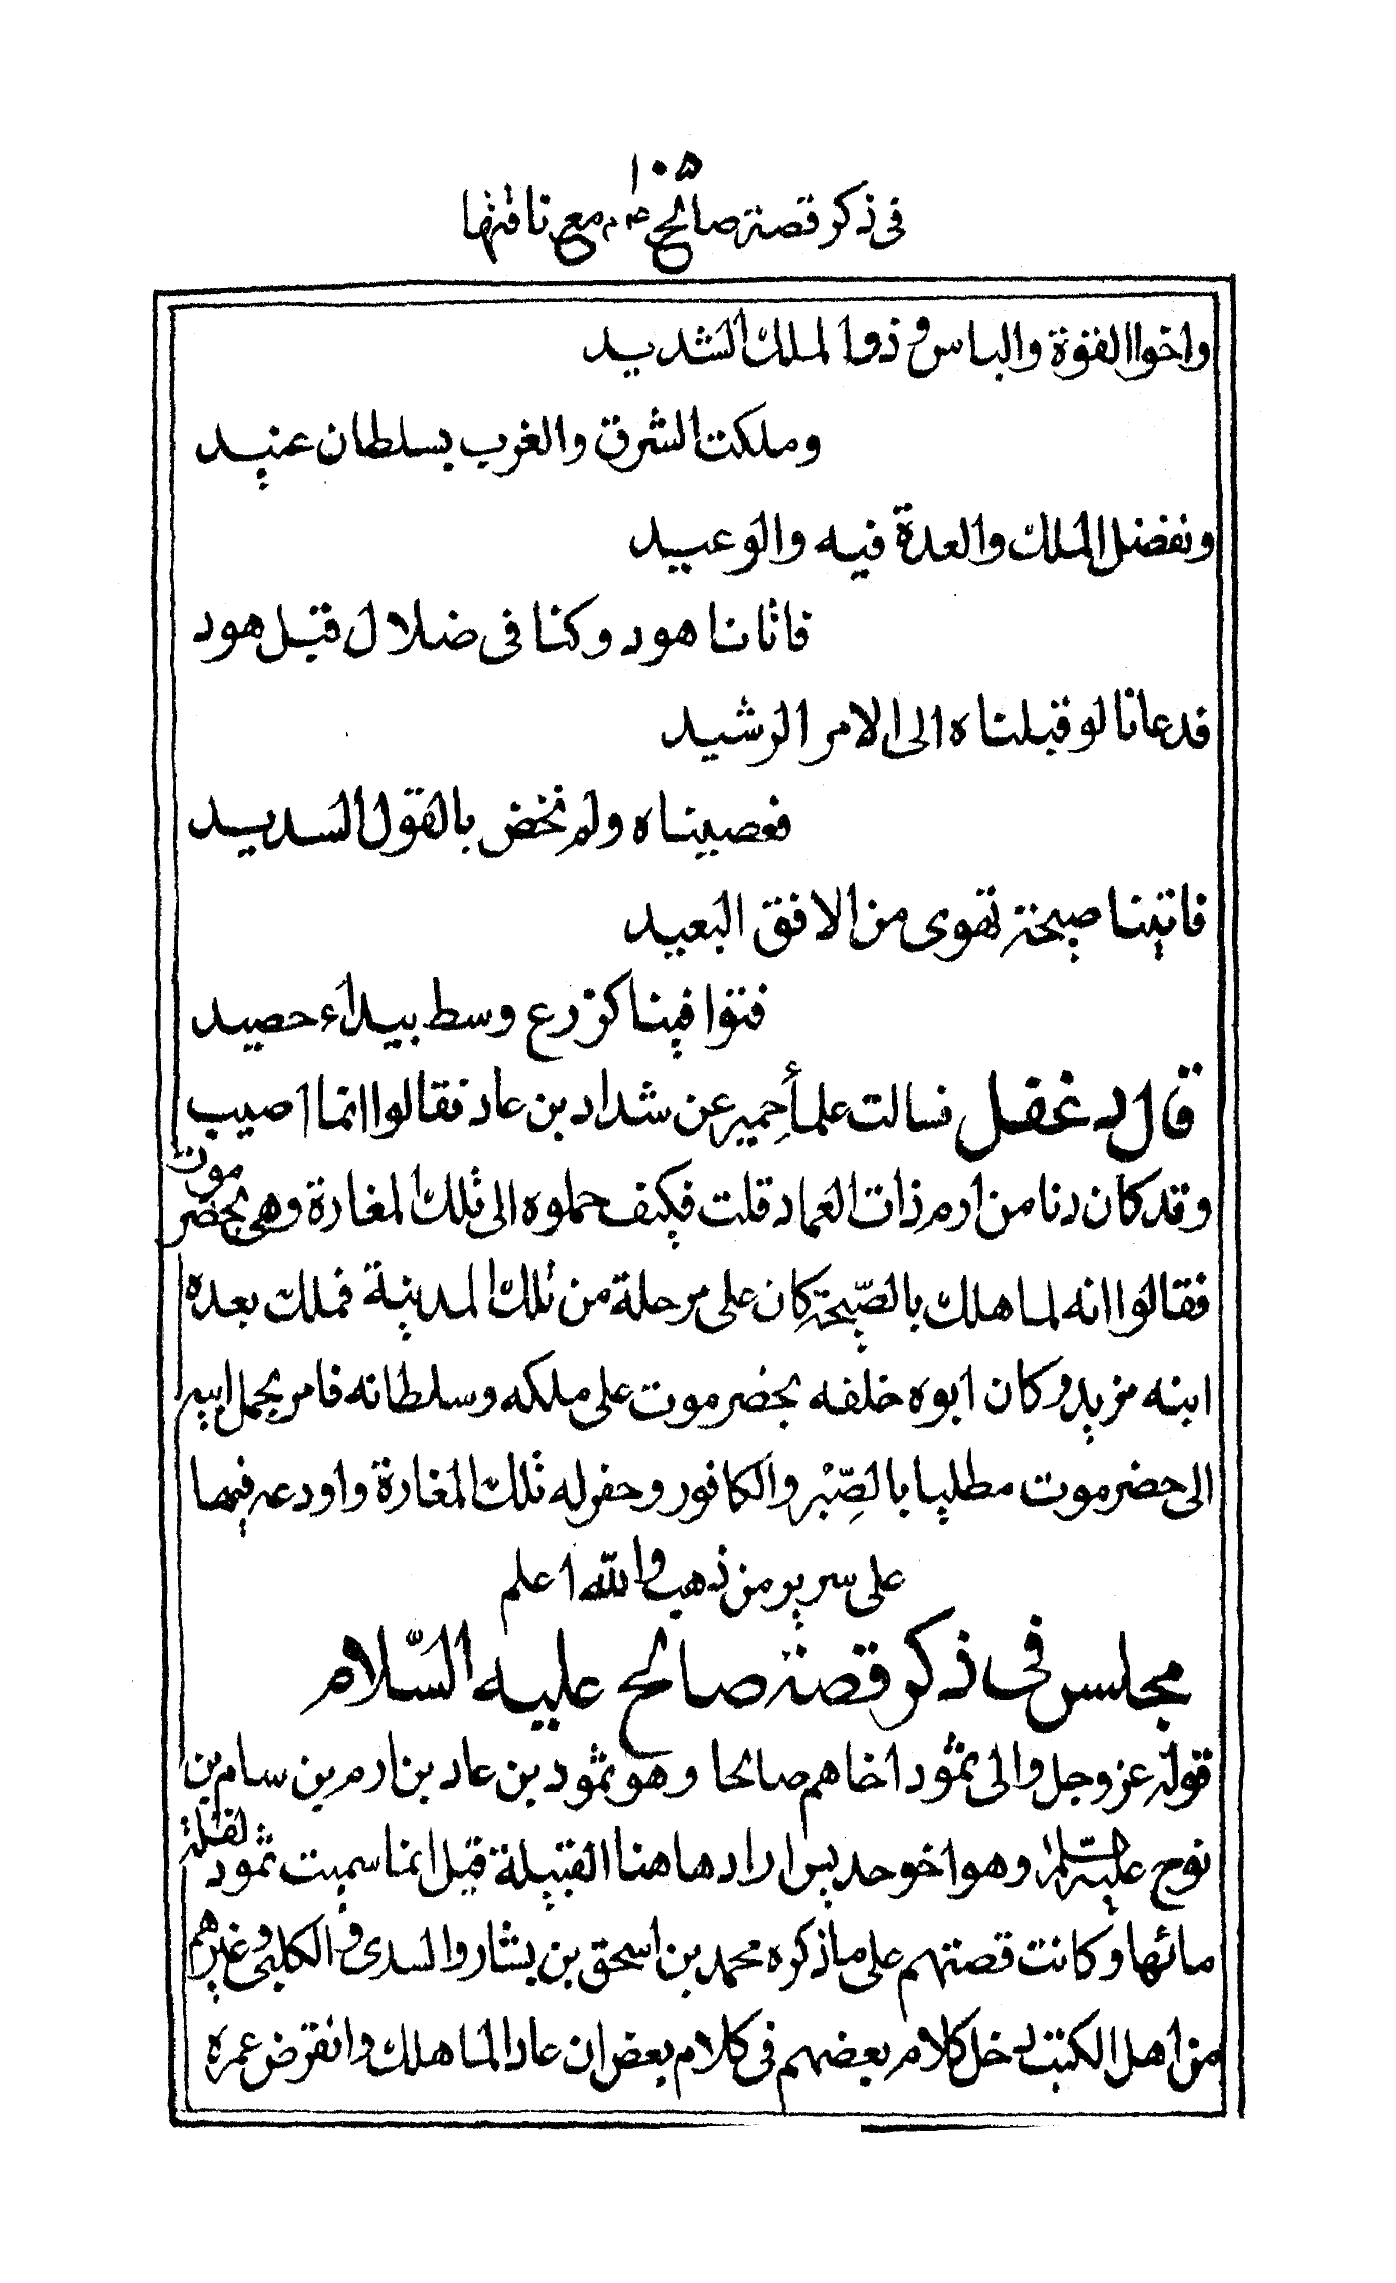 ١٠٥
فى ذكر قصة صالح عم مع ناقتها
واخوا القوة والباس و ذوا لملك الشديد
وملكت الشرق والغرب بسلطان عنيد
وبفضل الملك والعدة فيه والوعيد
فاتانا هود وكنا فى ضلال قبل هود
فدعانا لو قبلناه الى الامر الرشيد
فعصيناه ولم نخض بالقول السديد
فاتينا صيحة تهوى من الافق البعيد
فتوا فينا كزرع وسط بيداء حصيد
قال دغفل فسالت علمأ حمير عن شداد بن عاد فقالوا انما اصيب
وقد كان دنا من ارم ذات العماد قلت فكيف حملوه الى تلك المغارة وهى بحضر موت
فقالوا انه لما هلك بالصّيحة كان على مرحلة من تلك المدينة فملك بعده
ابنه مزيد وكان ابوه خلفه بحضرموت على ملكه وسلطانه فامر بحمل ابيه
الى حضرموت مطليا بالصِّبْر والكافور وحفر له تلك المغارة واودعه فيها
على سرير من ذهب والله اعلم
مجلس فى ذكر قصة صالح عليه السّلام
قوله عز وجل والى ثمود اخاهم صالحا وهو ثمود بن عاد بن ارم بن سام بن
نوح عليه السّلم وهو اخو جديس اراد هاهنا القبيلة قيل انما سميت ثمود لقلة
مائها وكانت قصتهم على ما ذكره محمد بن اسحق بن يشار والسدى و الكلبى وغيرهم
من اهل الكتب دخل كلام بعضهم فى كلام بعض ان عاد الما هلك وانقرض عمره